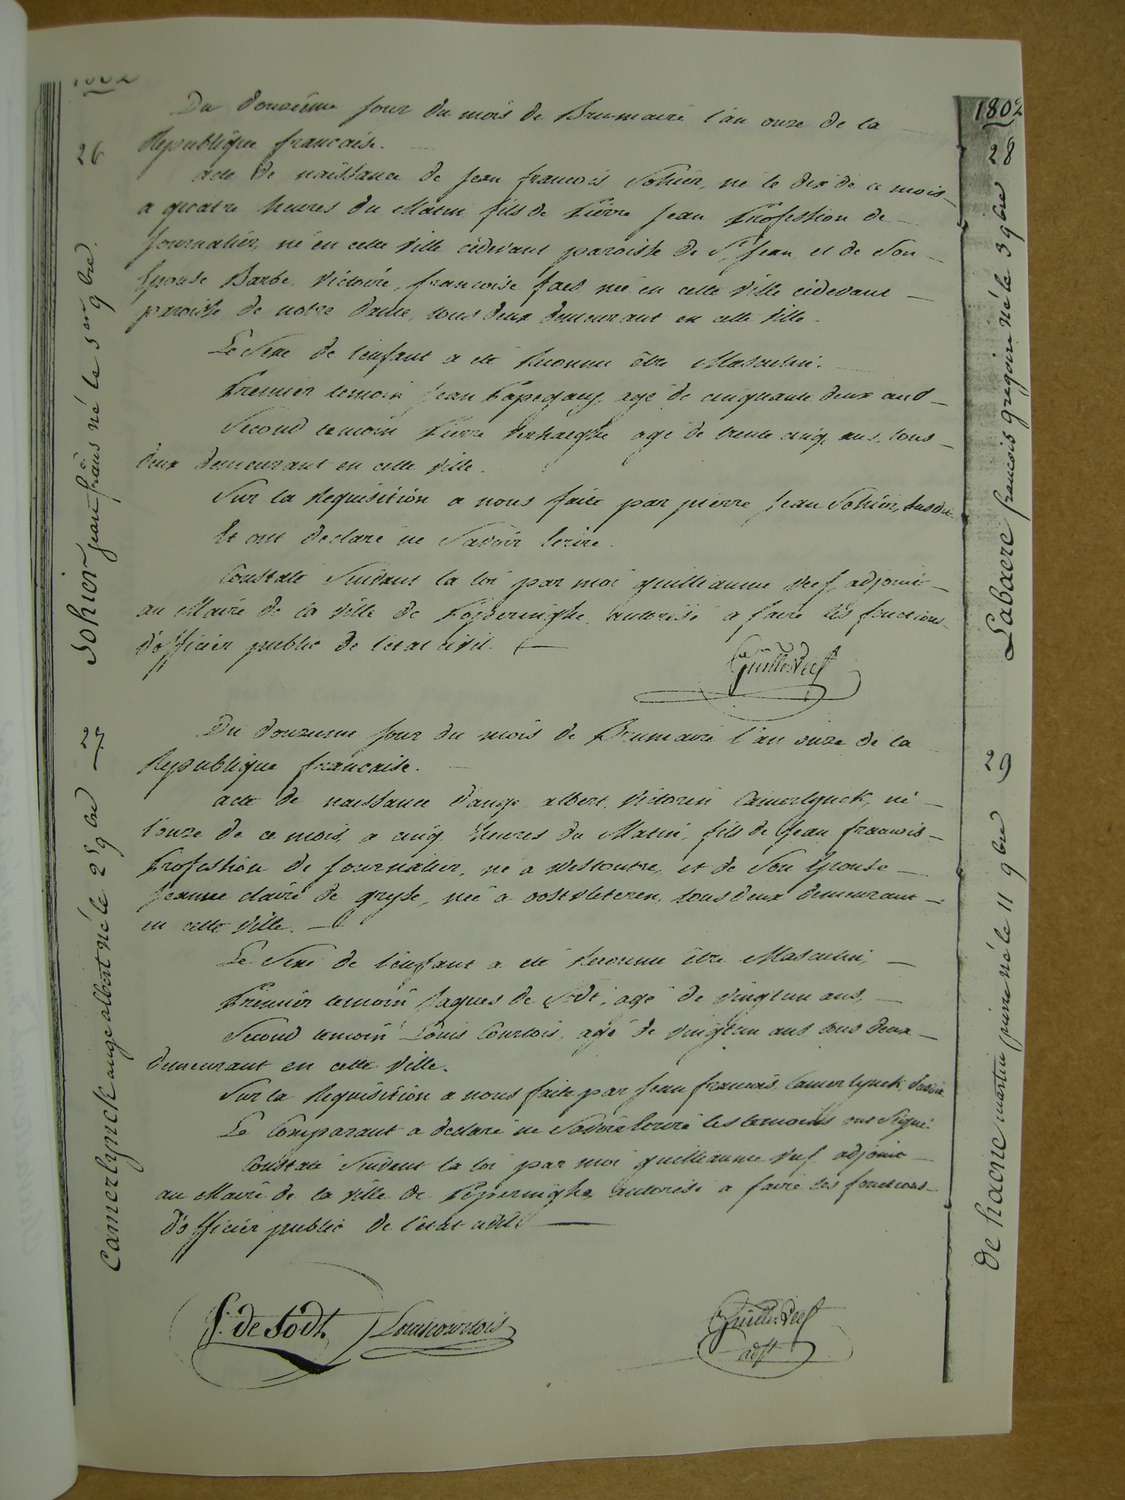 1802
26
Sohier jean frâns né le 3 9bre
Du douzième jour du mois de Brumaire l'an onze de la
Republique francaise.
Acte de naissance de jean francois Sohier, né le dix de ce mois
a quatre heures du Matin fils de Pierre jean Profession de
journalier, né en cette ville cidevant paroisse de St jean, et de Son
Epouse Barbe Victoire, francoise faes née en cette Ville cidevant
paroisse de notre dame, tous deux demeurant en cette Ville.
Le Sexe de l'enfant a eté Reconnu être Masculin.
Premier temoin jean Papegaey, agé de cinquante deux ans
Second temoin Pierre Verhaeghe agé de trente cinq ans, tous
deux demeurant en cette Ville.
Sur la Requisition a nous faite par pierre jean Sohier,
Et ont declaré ne Savoir Ecrire.
Constaté Suivant la loi par moi guilleaume Veef, adjoint
au Maire de la Ville de Poperinghe, autorisé a faire les fonctions
d'officier public de l'etat civil.
Guille Veef
27
Camerlynck ange albert né le 2 9bre
Du douzieme jour du mois de Brumaire l'an onze de la
Republique francaise.
acte de naissance d'ange albert Victorin Camerlynck, né
l'onze de ce mois, a cinq Heures du Matin, fils de jean francois
Profession de journalier, né a Westoutre, et de Son Epouse
jeanne claire de gryse, née a oostvleteren, tous deux demeurant
en cette Ville.
Le Sexe de l'enfant a eté Reconnu être Masculin,
Premier temoin jaques de Sodt, agé de vingtun ans,
Second temoin Louis Courtois, agé de vingtun ans tous deux
demeurant en cette Ville.
Sur la Requisition a nous faite par jean francois Camerlynck,
Le Comparant a declaré ne Savoir Ecrire les temoins ont Signé.
Constaté Suivant la loi par moi guilleaume Veef adjoint
au Maire de la Ville de Poperinghe autorisé a faire les fonctions
D'officier public de l'etat civil
J. de Sodt Louis courtois
Guille Veef
adjt
1802
28
Labaere francois gregoire né le 3 9bre
29
de haene martin pierre né le 11 9bre